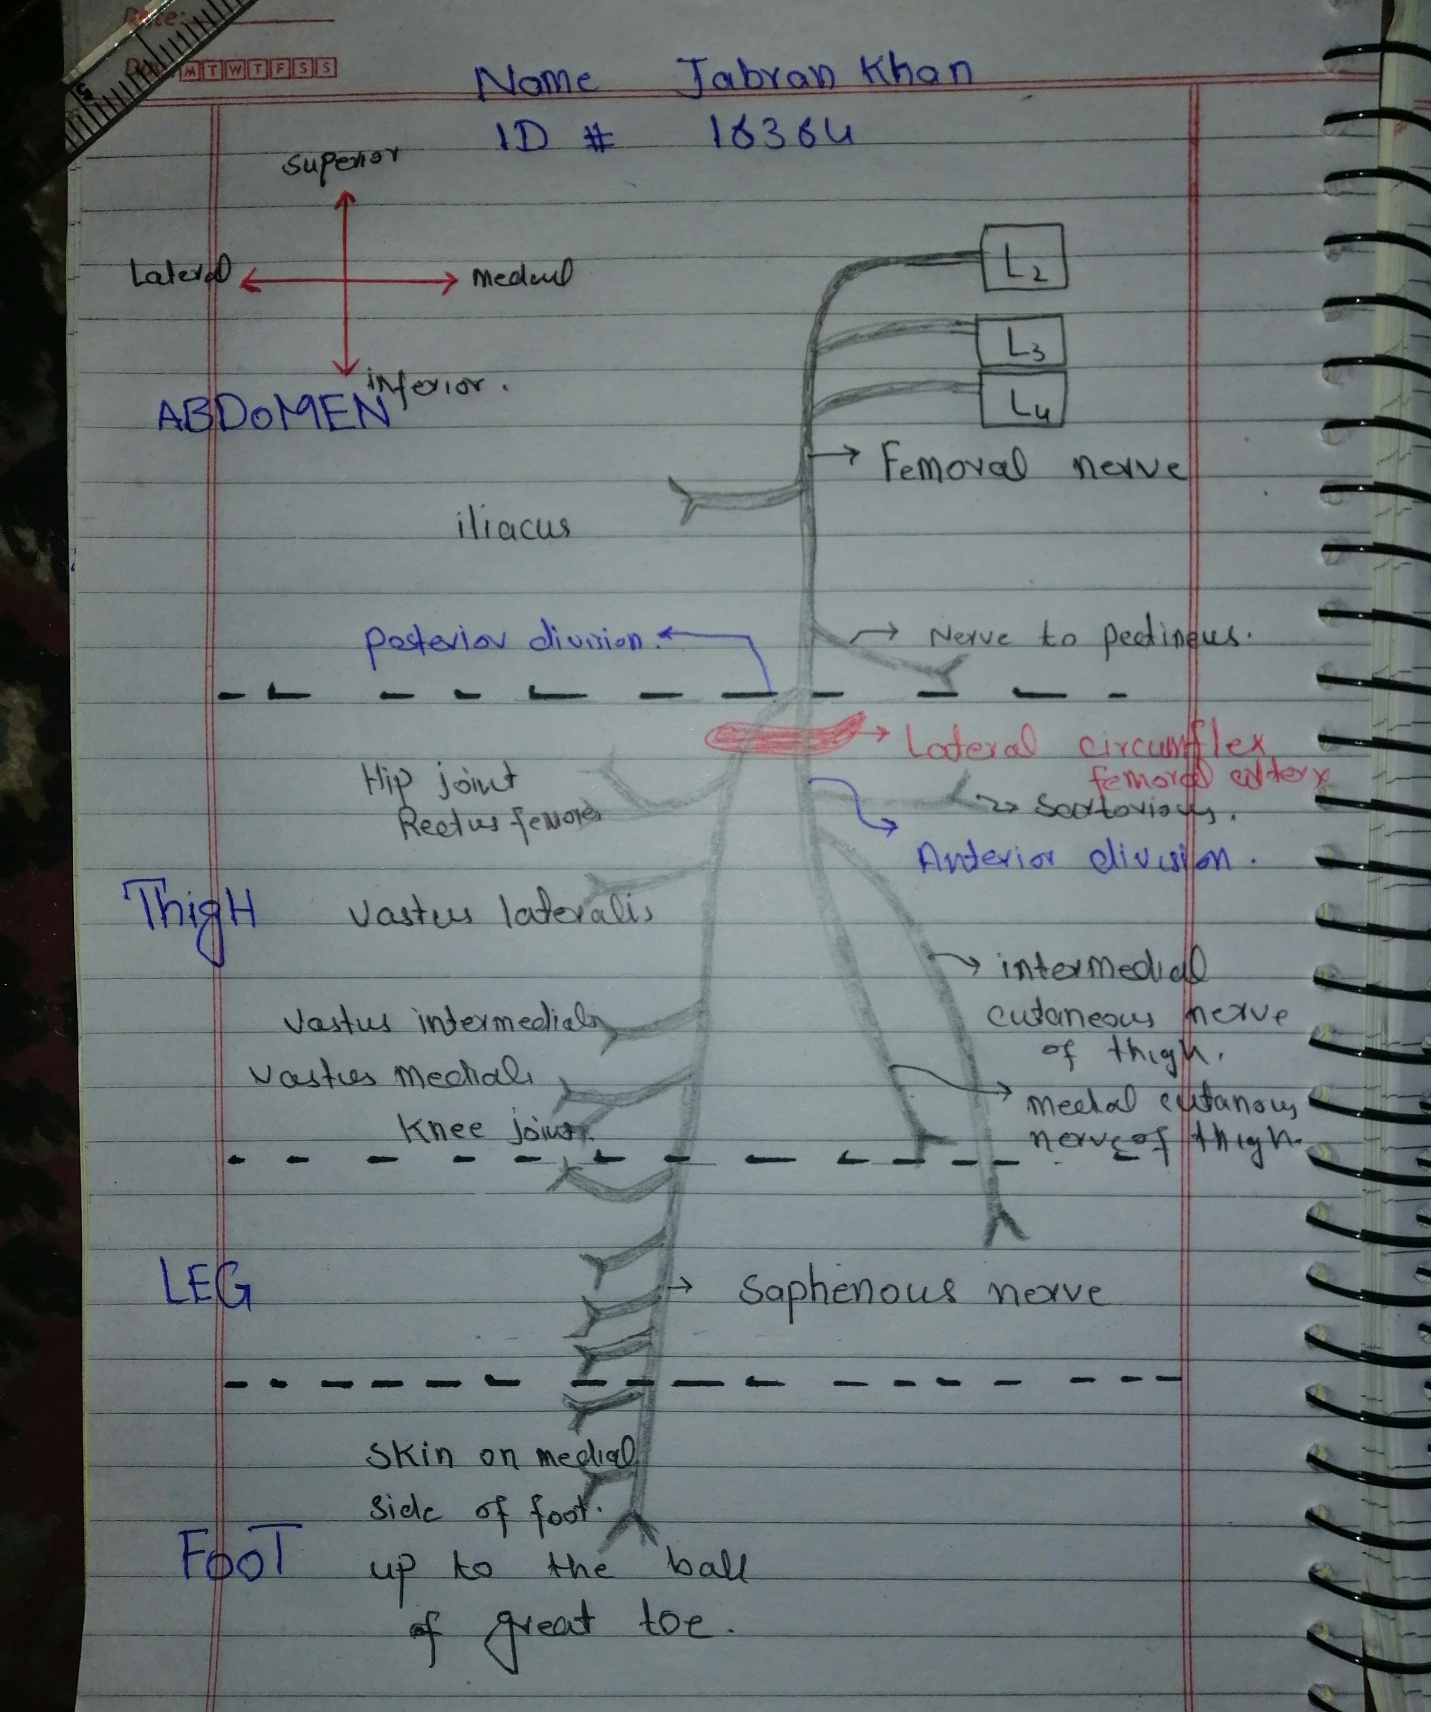 Date:
M T W T F S S
Name Jabran Khan
ID # 16364
Superior
Lateral
Medial
inferior.
ABDOMEN
L2
L3
L4
Femoral nerve
iliacus
posterior division.
Nerve to pectineus.
Lateral circumflex
femoral artery
Hip joint
Rectus femoris
Sartorious.
Anterior division.
ThigH
Vastus lateralis
intermedial
cutaneous nerve
of thigh.
Vastus intermedials
Vastus Medials
Medial cutanous
nerve of thigh.
Knee joint
LEG
Saphenous nerve
Skin on medial
side of foot.
FooT
up to the ball
of great toe.